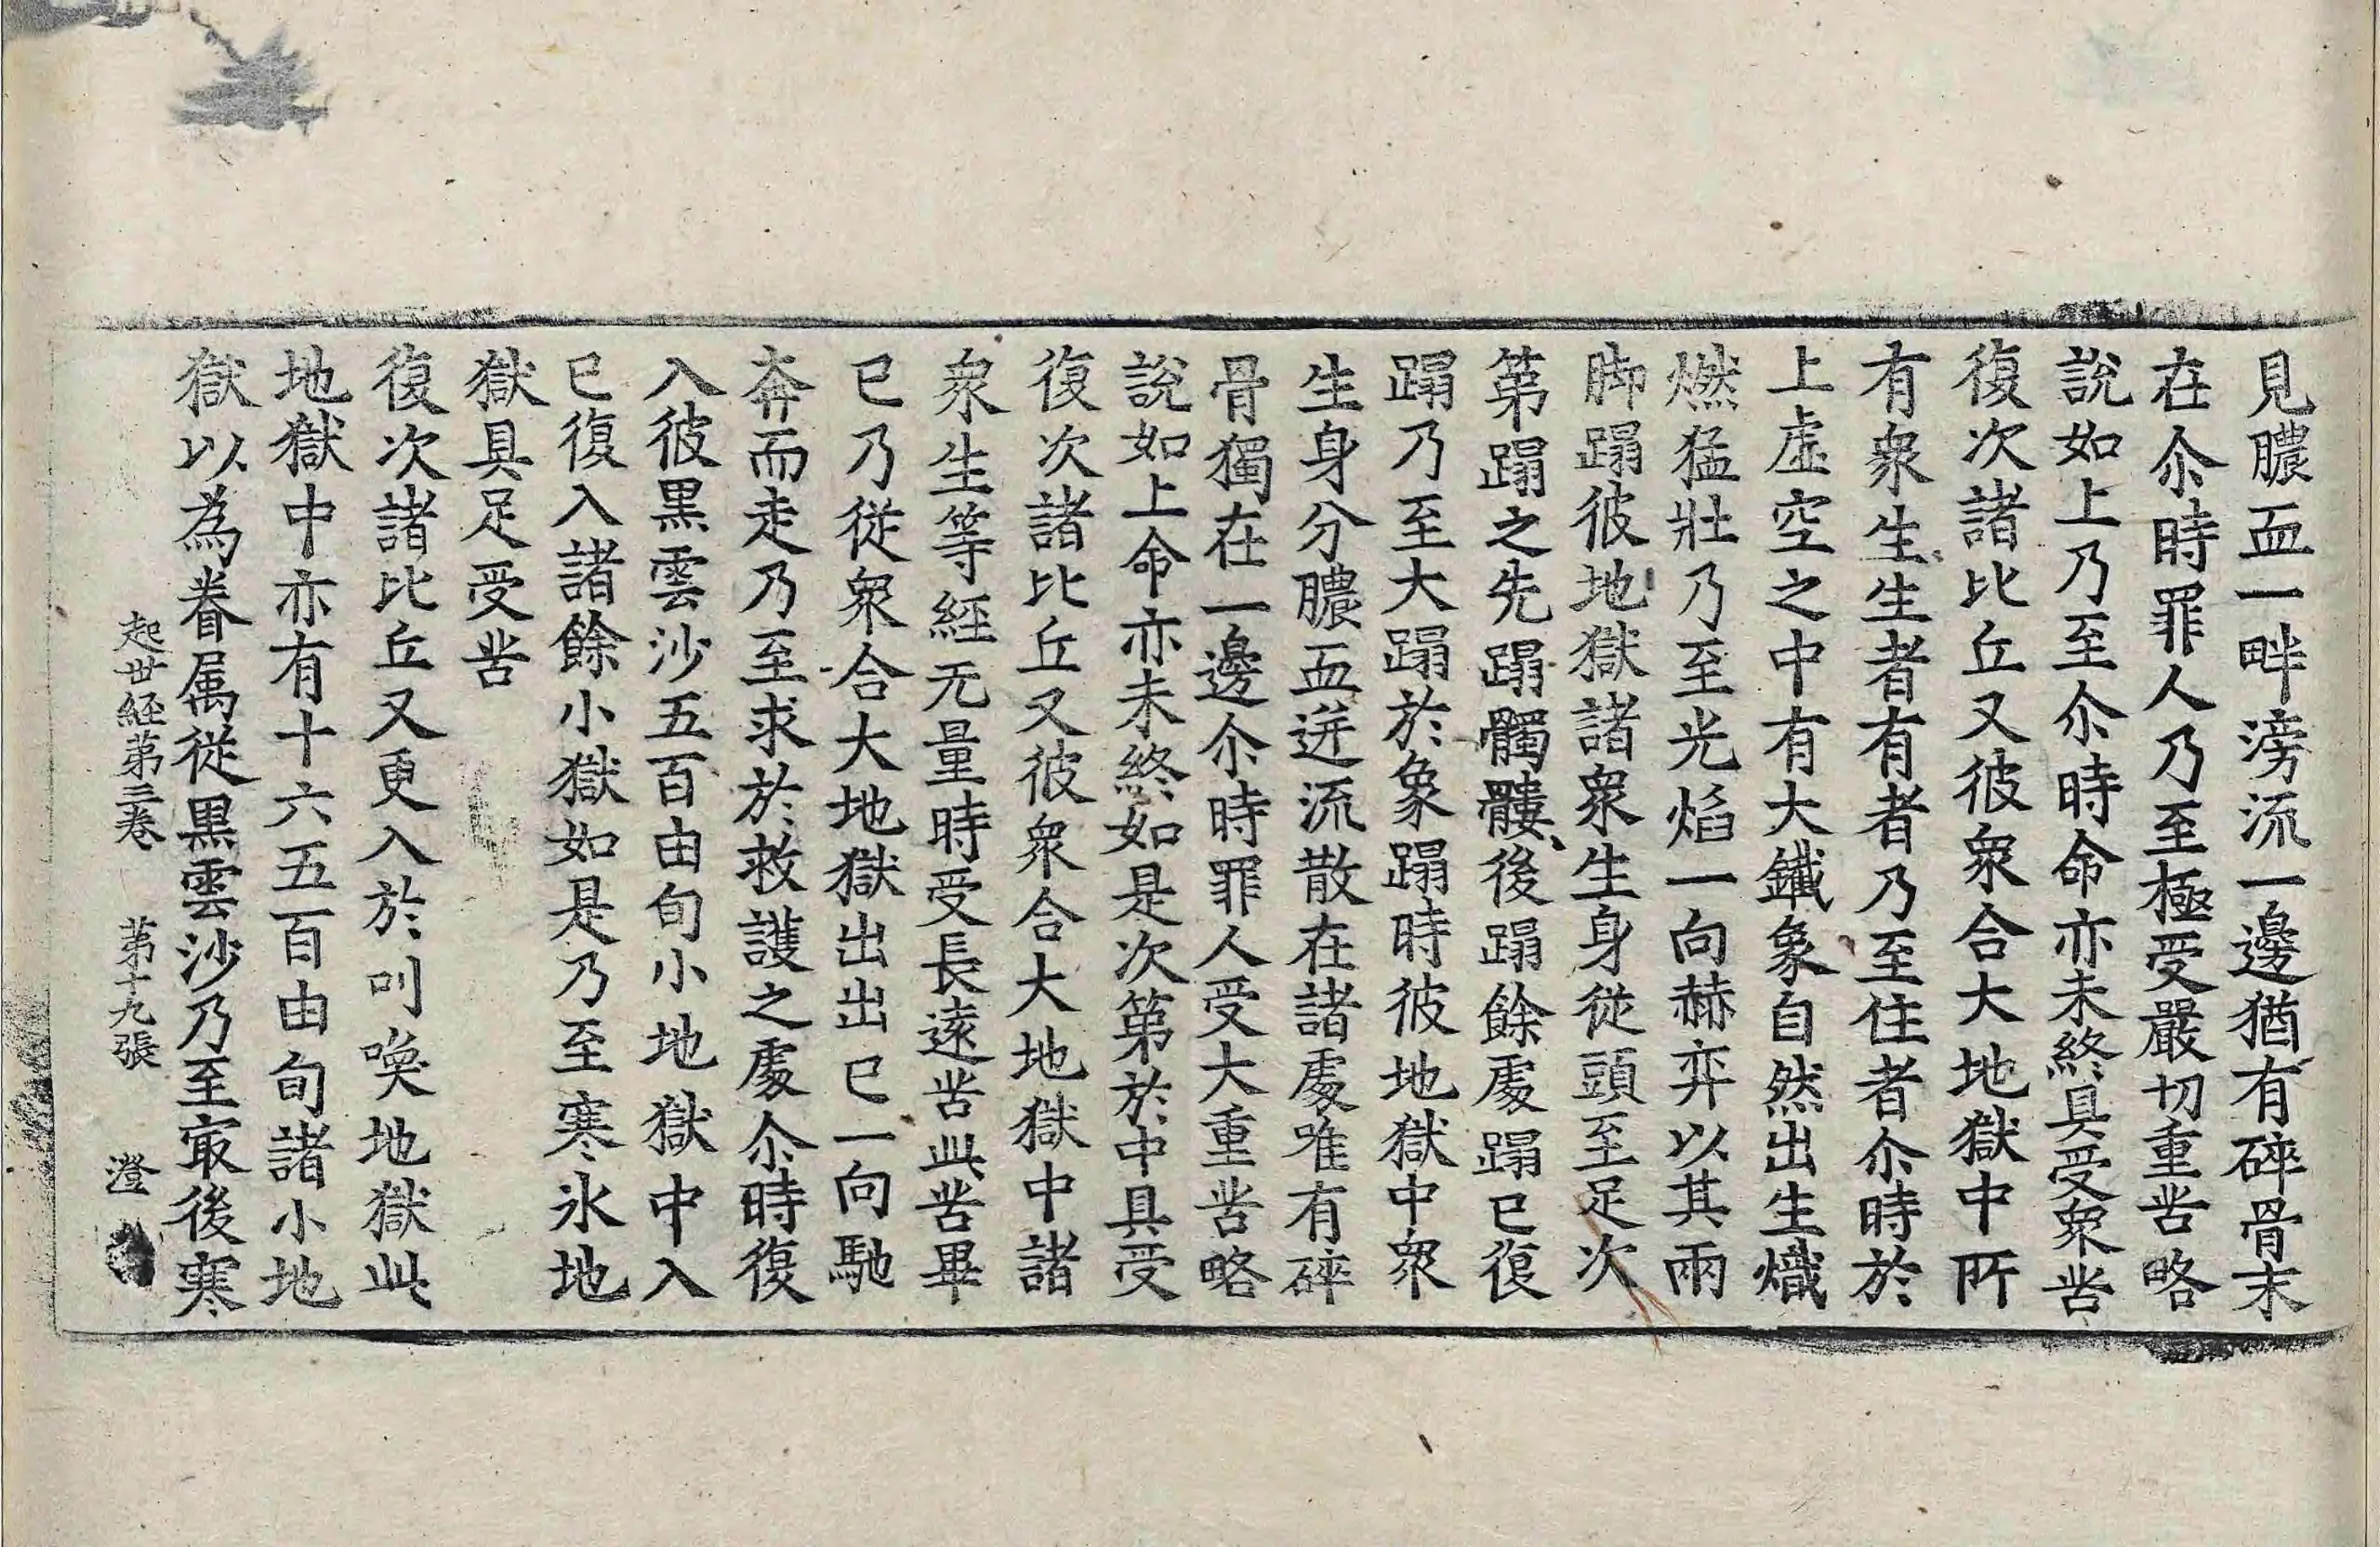 見膿血一畔滂流一邊猶有碎骨末
在尒時罪人乃至極受嚴切重苦略
說如上乃至尒時命亦未終具受衆苦
復次諸比丘又彼衆合大地獄中所
有衆生生者有者乃至住者尒時於
上虛空之中有大鐵象自然出生熾
燃猛壯乃至光焰一向赫弈以其兩
脚蹋彼地獄諸衆生身從頭至足次
第蹋之先蹋髑髏後蹋餘處蹋已復
蹋乃至大蹋於象蹋時彼地獄中衆
生身分膿血迸流散在諸處唯有碎
骨獨在一邊尒時罪人受大重苦略
說如上命亦未終如是次第於中具受
復次諸比丘又彼衆合大地獄中諸
衆生等經无量時受長遠苦此苦畢
已乃從衆合大地獄出出已一向馳
奔而走乃至求於救護之處尒時復
入彼黑雲沙五百由旬小地獄中入
已復入諸餘小獄如是乃至寒氷地
獄具足受苦
復次諸比丘又更入於叫喚地獄此
地獄中亦有十六五百由旬諸小地
獄以為眷属從黒雲沙乃至㝡後寒
起世経第三卷 第十九張 澄